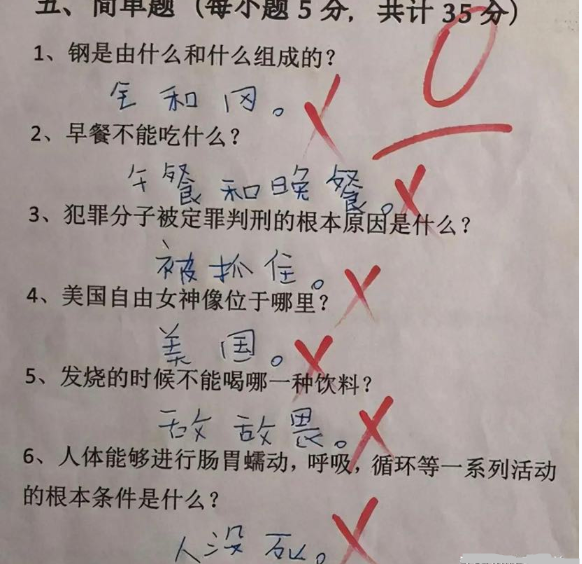 五、简单题(每小题5分,共计35分)
0
1、钢是由什么和什么组成的?
钅和冈。
2、早餐不能吃什么?
午餐和晚餐。
3、犯罪分子被定罪判刑的根本原因是什么?
被抓住。
4、美国自由女神像位于哪里?
美国。
5、发烧的时候不能喝哪一种饮料?
敌敌畏。
6、人体能够进行肠胃蠕动,呼吸,循环等一系列活动
的根本条件是什么?
人没死。